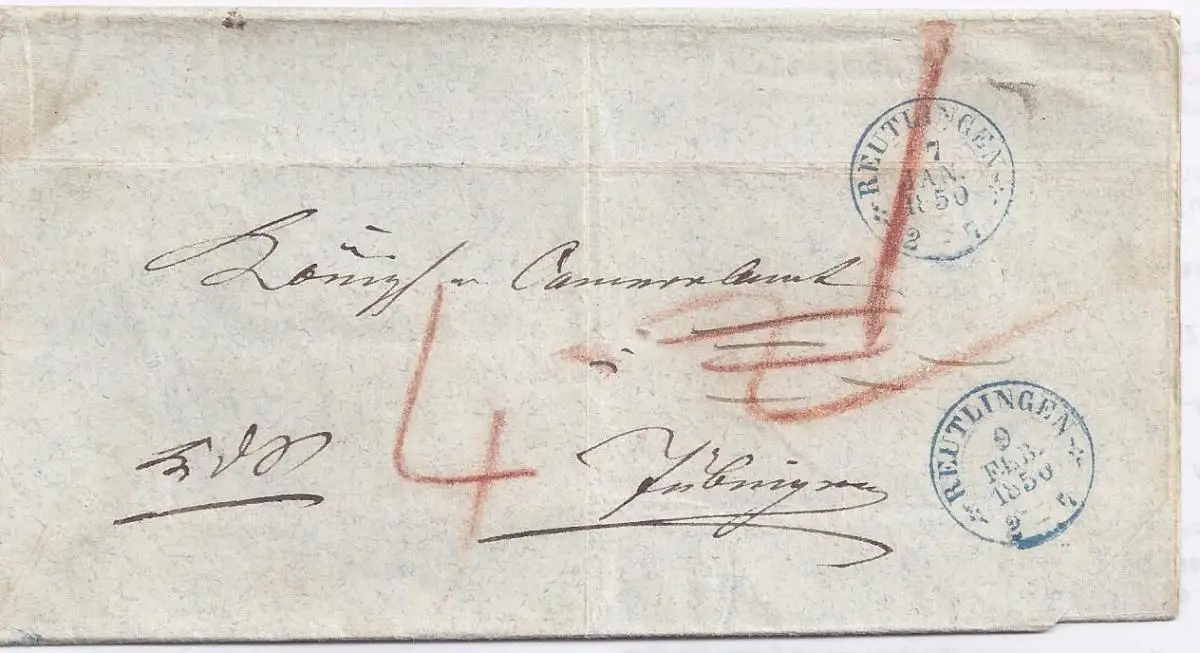 REUTLINGEN
7
JAN.
1850
2 – 7
Königl. Cameralamt
4
in
Tübingen
REUTLINGEN
9
FEB.
1850
2 – 7